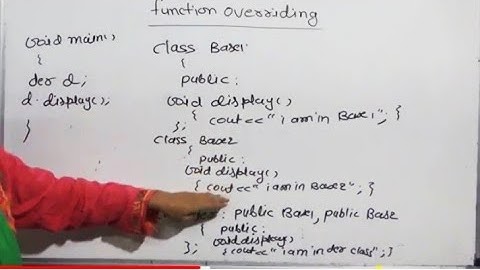 function overriding
void main()
{
der d;
d.display();
}
class Base1
{
public:
void display()
{ cout<<"i am in Base1"; }
};
class Base2
{
public:
void display()
{ cout<<"i am in Base2"; }
: public Base1, public Base2
{ public:
void display()
{ cout<<"i am in der class"; }
};